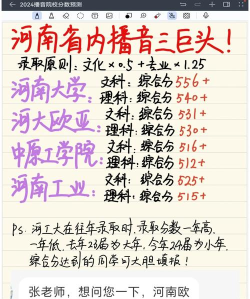 2024播音院校分数预测
河南省内播音三巨头！
录取原则：文化×0.5+专业×1.25
河南大学：文科：综合分556+
理科：综合分540+
河大欧亚：文科：综合分531+
理科：综合分530+
中原工学院：文科：综合分516+
理科：综合分512+
河南工业：文科：综合分525+
理科：综合分515+
Ps：河工大在往年录取时，录取分数一年高，
一年低，去年23届为大年，今年24届为小年，
综合分达到的同学可大胆填报！
张老师，想问您一下，河南欧